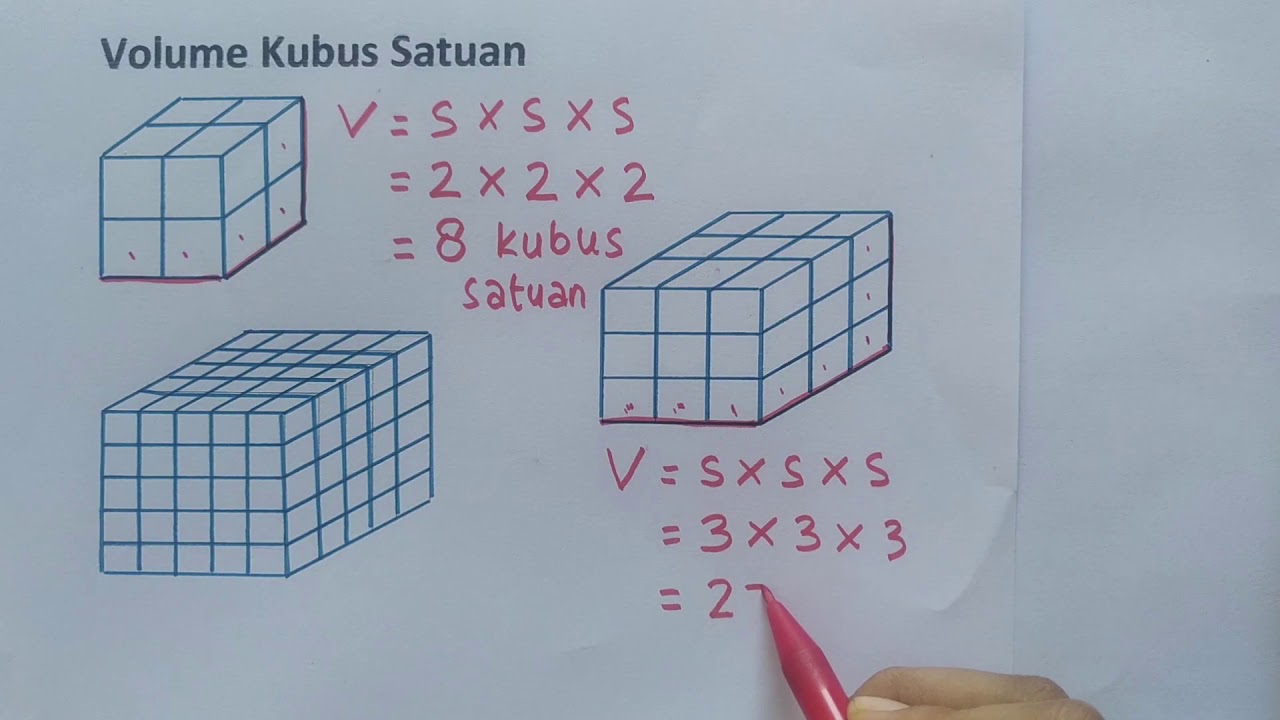 Volume Kubus Satuan
V = S × S × S
= 2 × 2 × 2
= 8 kubus
satuan
V = S × S × S
= 3 × 3 × 3
= 2